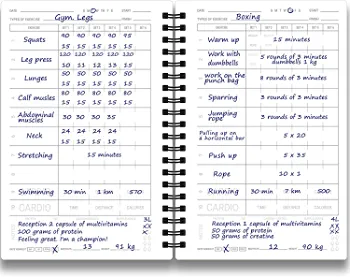 Gym. Legs
Squats
90 90 90 90 95
15 15 15 15 15
Leg press
120 120 120 120 120
10 11 12 13 15
Lunges
50 50 50 50 50
15 15 15 15 15
Calf muscles
80 80 80 80 80
15 15 15 15 15
Abdominal muscles
30 30 30 30
Neck
24 24 24 24
15 15 15 15
Stretching
15 minutes
Swimming
30 min 1 km 500
CARDIO
TIME DISTANCE CALORIES
Reception 2 capsule of multivitamins
100 grams of protein
Feeling great. I'm a champion!
3L
XX
X
13 91 kg
Boxing
Warm up
15 minutes
Work with dumbbells
5 rounds of 3 minutes
dumbbells 1 kg
work on the punch bag
8 rounds of 3 minutes
Sparring
3 rounds of 3 minutes
Jumping rope
3 rounds of 3 minutes
Pulling up on a horizontal bar
5 x 20
Push up
5 x 35
Rope
10 x 1
Running
30 min 7 km 500
CARDIO
TIME DISTANCE CALORIES
Reception 1 capsule of multivitamins
50 grams of protein
50 grams of creatine
4L
XX
XX
12 90 kg